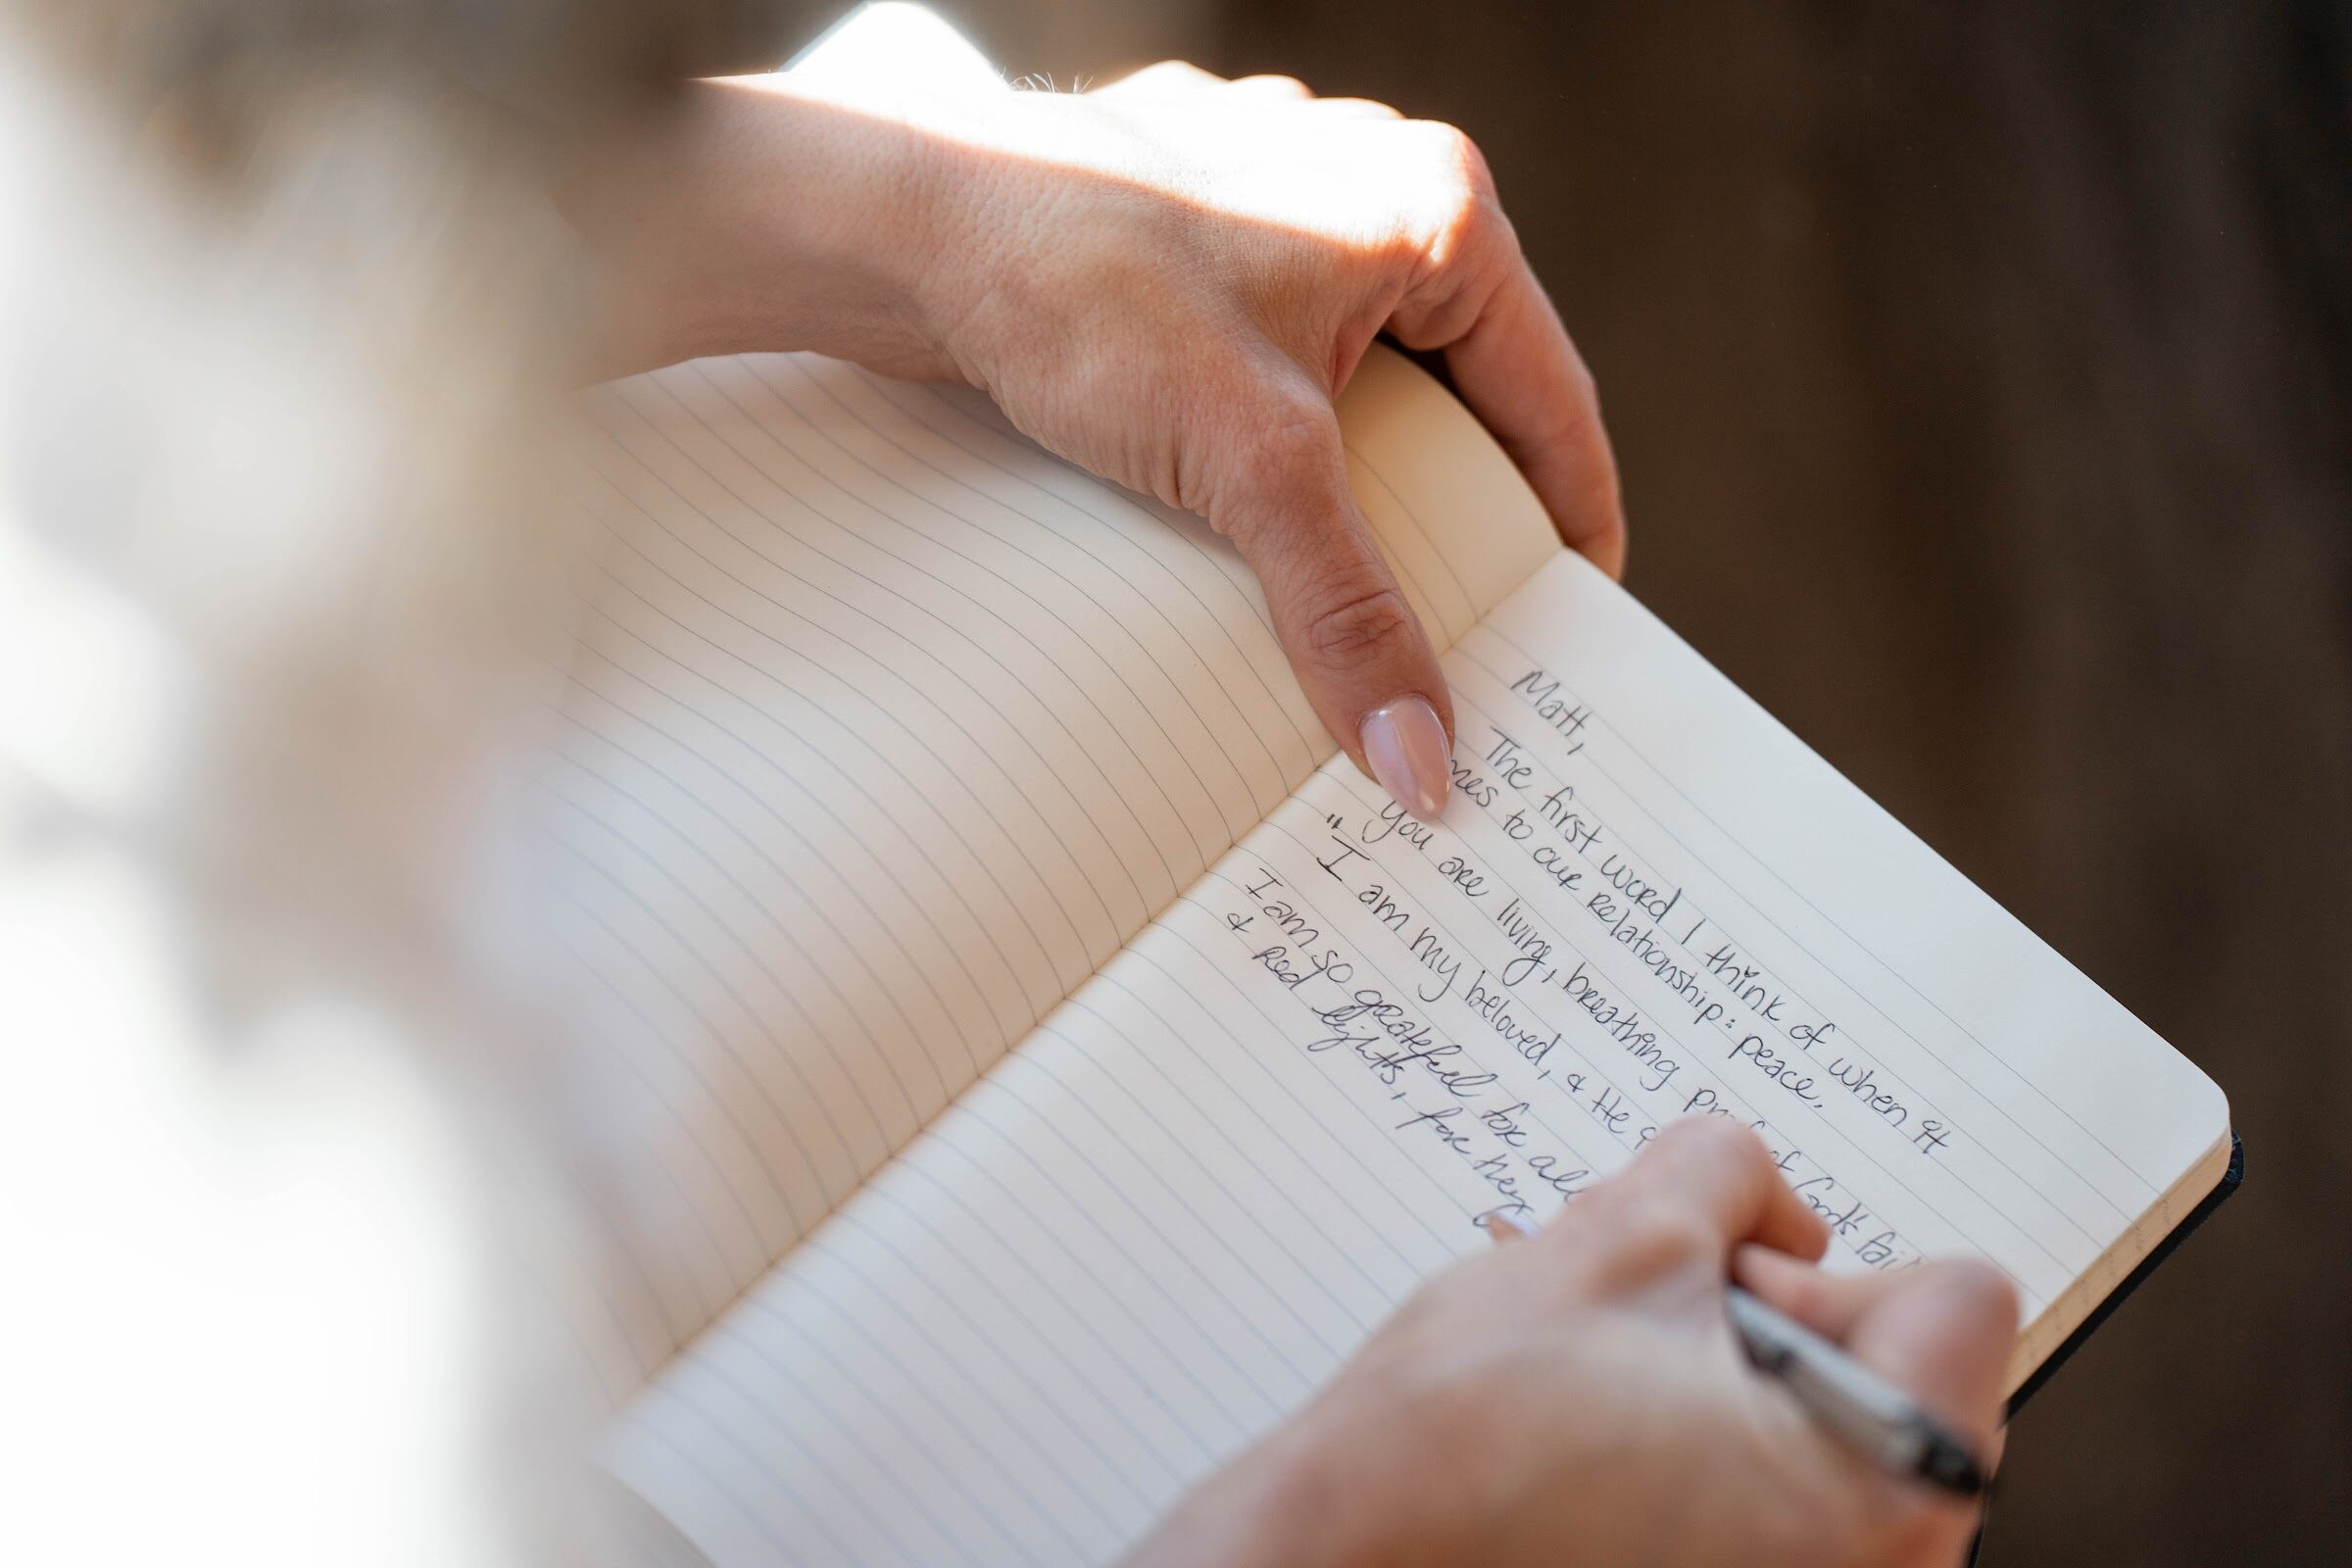 Matt,
The first word I think of when it
to our relationship: peace.
You are living, breathing God's
"I am my beloved, & He
I am so grateful for
& Red lights, for